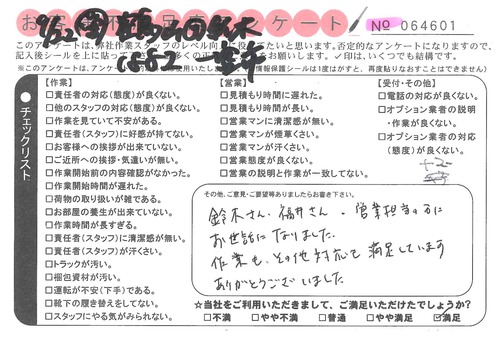 お客様不満足度アンケート
No 064601
9/22
鈴木
このアンケートは、弊社作業スタッフのレベル向上に役立てたいと思います。否定的なアンケートになりますので、
記入後シールを上に貼って
お願いします。〆日は、いくつでも結構です。
チェックリスト
【作業】
□責任者の対応(態度)が良くない。
□他のスタッフの対応(態度)が良くない。
□作業を見ていて不安がある。
□責任者(スタッフ)に好感が持てない。
□お客様への挨拶が出来ていない。
□ご近所への挨拶・気遣いが無い。
□作業開始前の内容確認がなかった。
□作業開始時間が遅れた。
□荷物の取り扱いが雑である。
□お部屋の養生が出来ていない。
□作業時間が長すぎる。
□責任者(スタッフ)に清潔感が無い。
□責任者(スタッフ)が汗くさい。
□トラックが汚い。
□梱包資材が汚い。
□運転が不安(下手)である。
□靴下の履き替えをしてない。
□スタッフにやる気がみられない。
【営業】
□見積もり時間に遅れた。
□見積もり時間が長い。
□営業マンに清潔感が無い。
□営業マンが煙草くさい。
□営業マンが汗くさい。
□営業態度が良くない。
□営業の説明と作業が一致してない。
【受付・その他】
□電話の対応が良くない。
□オプション業者の説明
・作業が良くない。
□オプション業者の対応
(態度)が良くない。
その他、ご意見・ご要望等ありましたらお書き下さい。
鈴木さん、福井さん、営業担当の方に
お世話になりました。
作業も、その他対応も満足しています
ありがとうございました。
☆当社をご利用いただきまして、ご満足いただけたでしょうか?
□不満 □やや不満 □普通 □やや満足 ☑満足